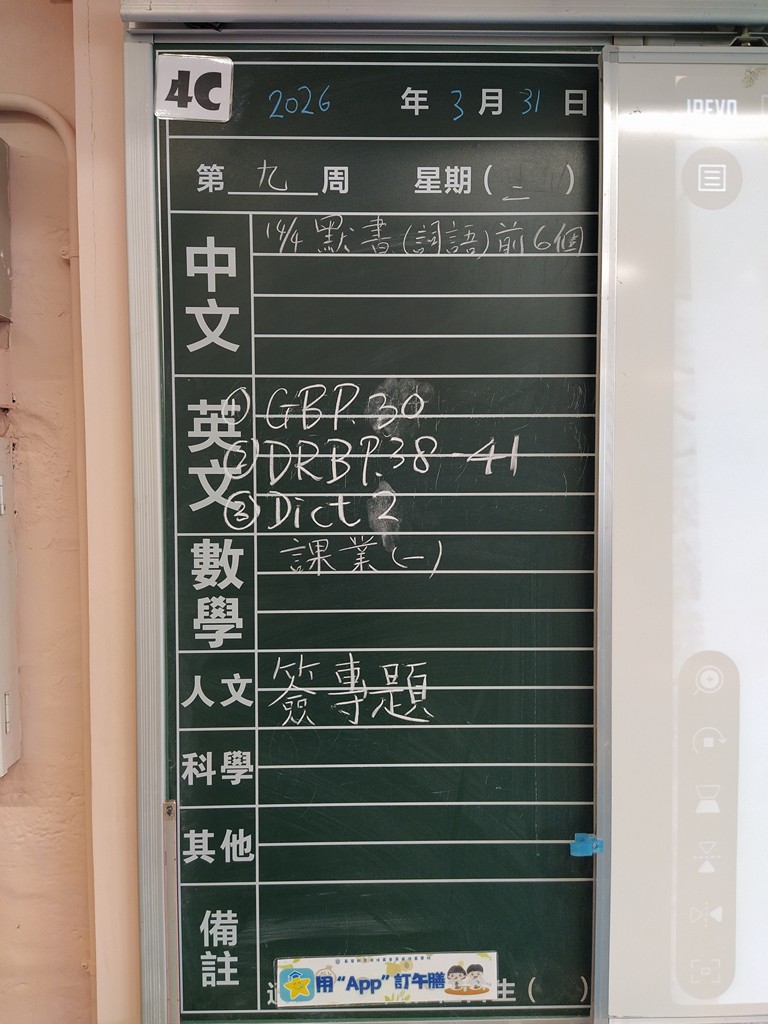 4C
2026 年 3 月 31 日
第 九 周 星期 ( 二 )
中文
14/4 默書(詞語)前6個
英文
① GB P.30
② DRB P.38-41
③ Dict 2
數學
課業(一)
人文
簽專題
科學
其他
備註
用 “App” 訂午膳
生 ( )
IPEVO